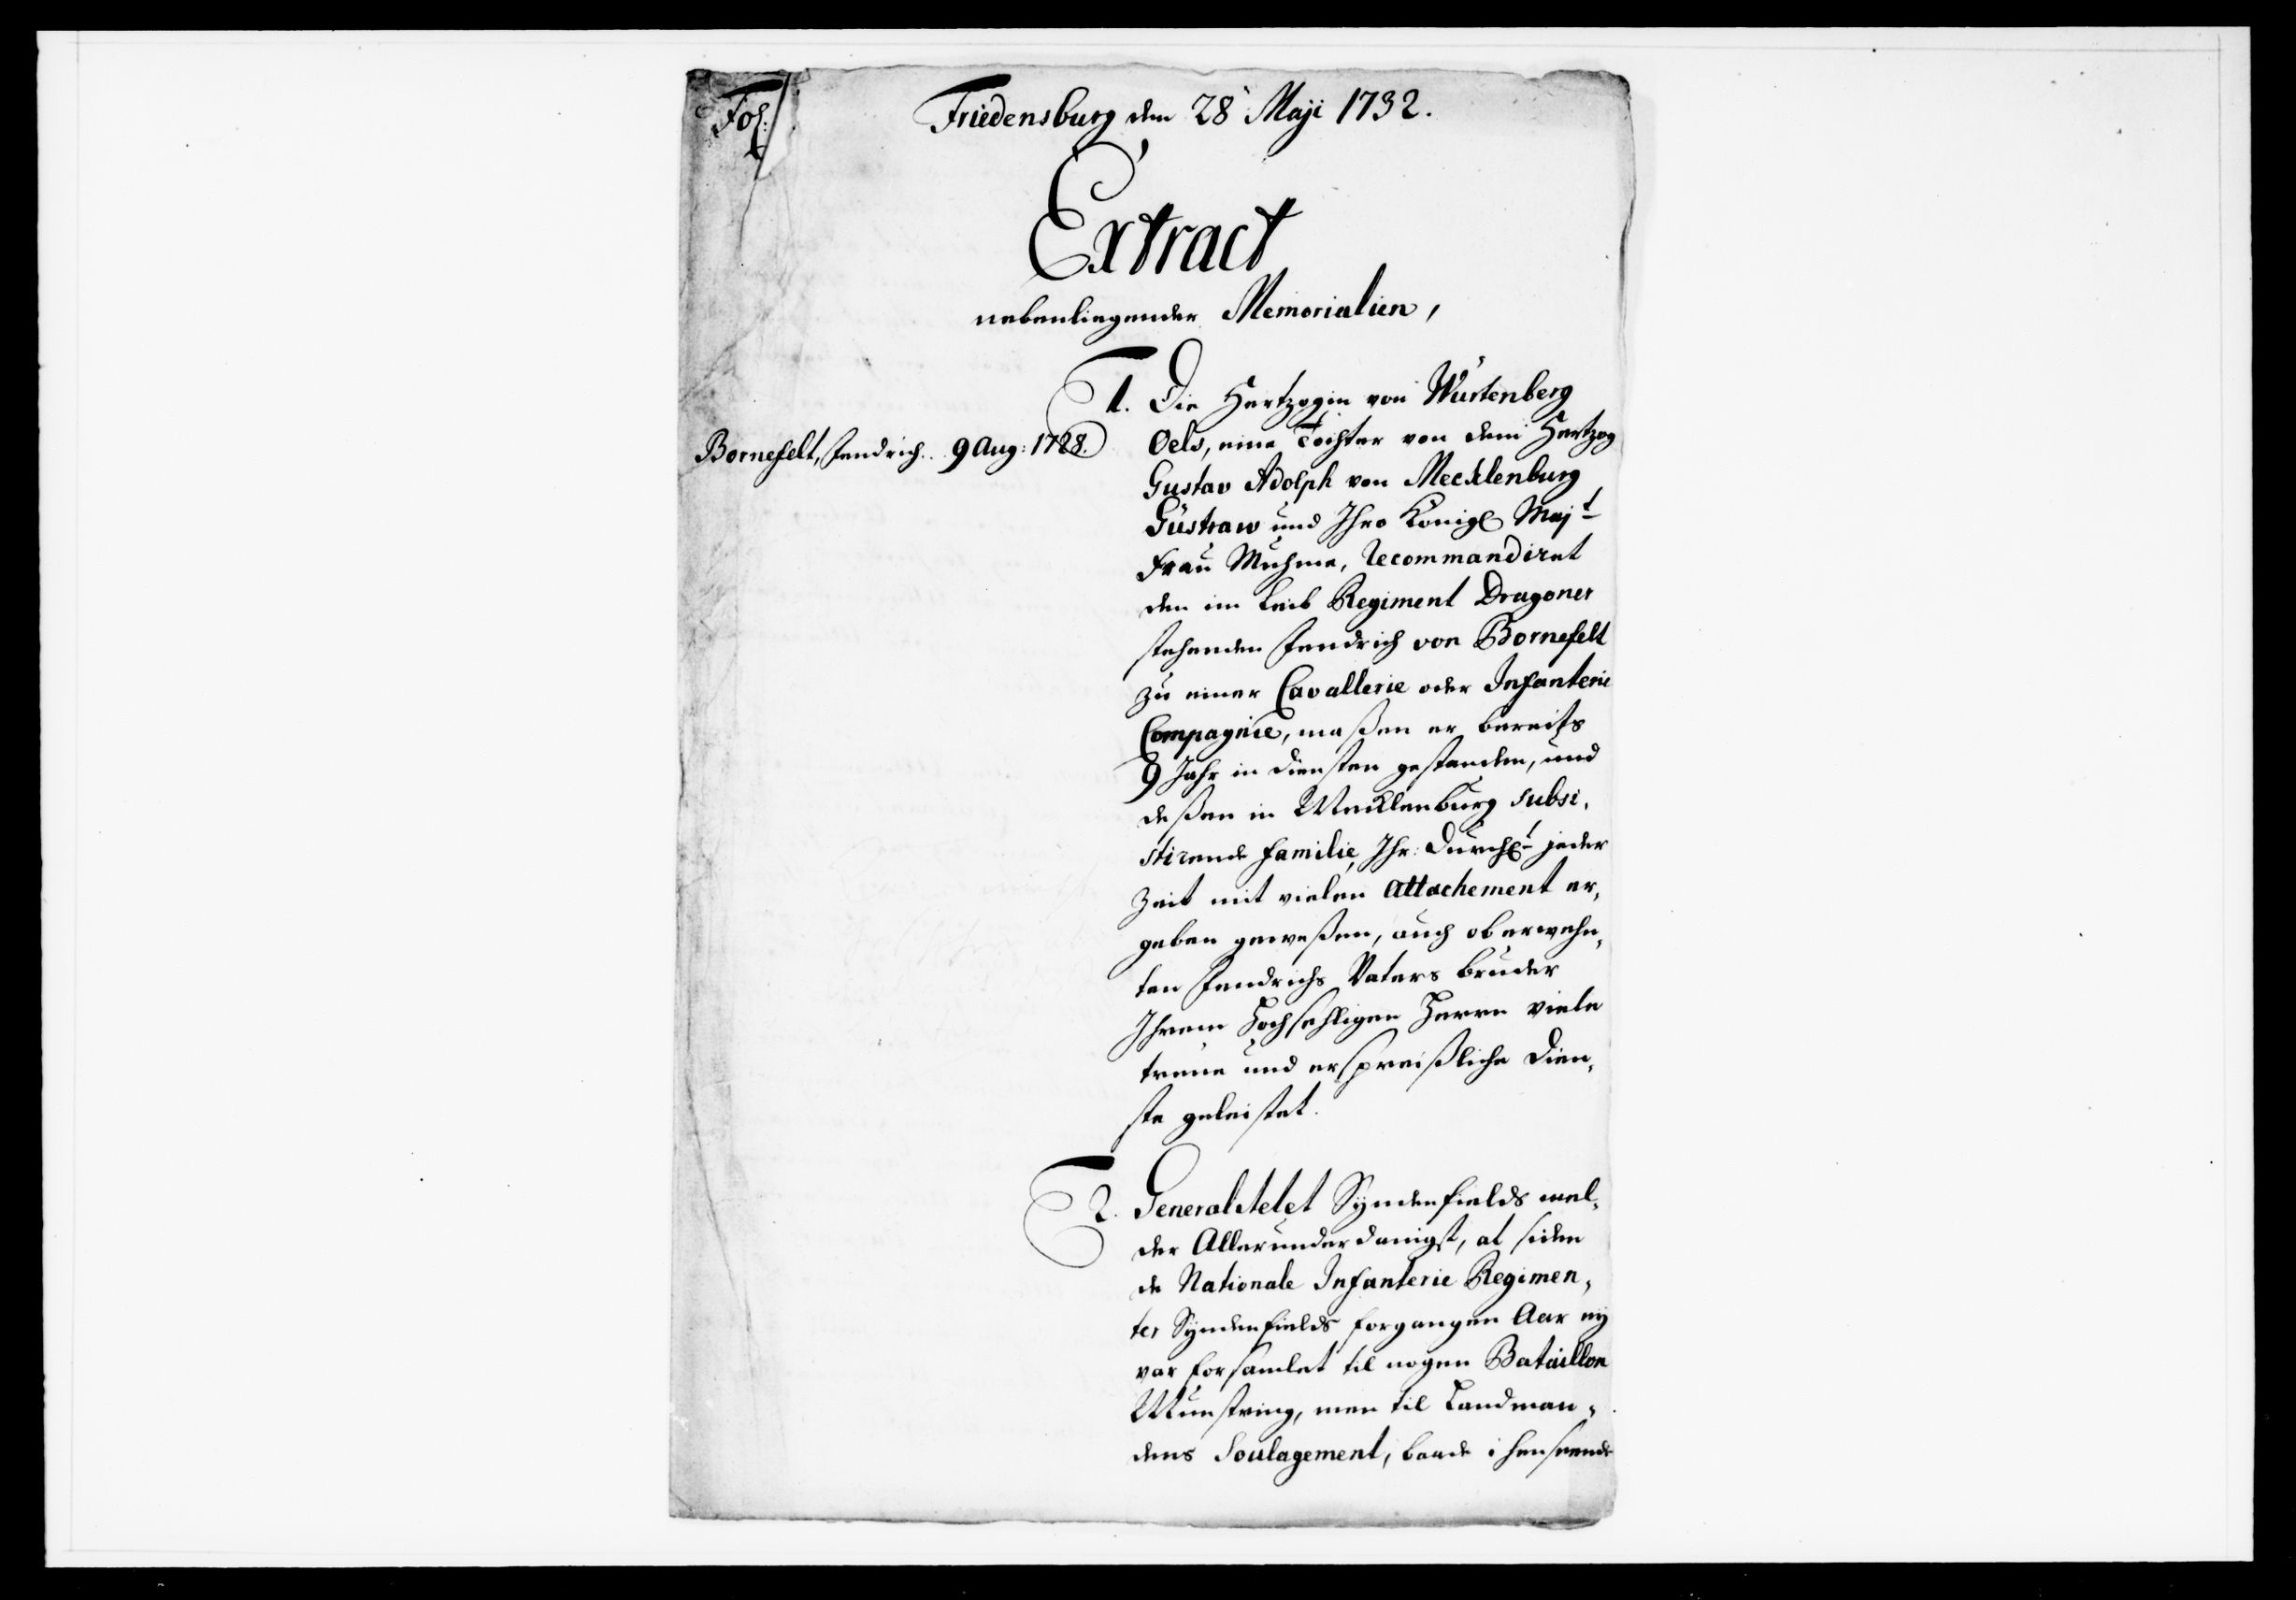 Fol:
Friedensburg den 28 Maji 1732.
Extract
nebenliegender Memorialien,
1. Die Hertzogin von Würtenberg
Bornefelt, Fendrich. 9 Aug: 1728.
Oels, eine Tochter von dem Hertzog
Gustav Adolph von Mecklenburg
Güstraw und Ihro Königl Majt
Frau Muhme, recommandiret
den im Leib Regiment Dragoner
stehenden Fendrich von Bornefelt
zu einer Cavallerie oder Infanterie
Compagnie, maßen er bereits
9 Jahr in diensten gestanden, und
deßen in Mecklenburg subsi-
stirende familie, Ihr: Durchlt jeder
Zeit mit vielen Attachement er-
geben geweßen, auch oberwehn-
ten Fendrichs Vaters bruder
Ihrem Hochsehligen Herrn viele
treue und erspreißliche Dien-
ste geleistet.
2. Generalitetet Syndenfields mel-
der Allerunderdanigst, at siden
de Nationale Infanterie Regimen-
ter Syndenfields forgangen Aar ey
var forsamlet til nogen Bataillon
Munstring, men til Landman-
dens Soulagement, baade i henseende